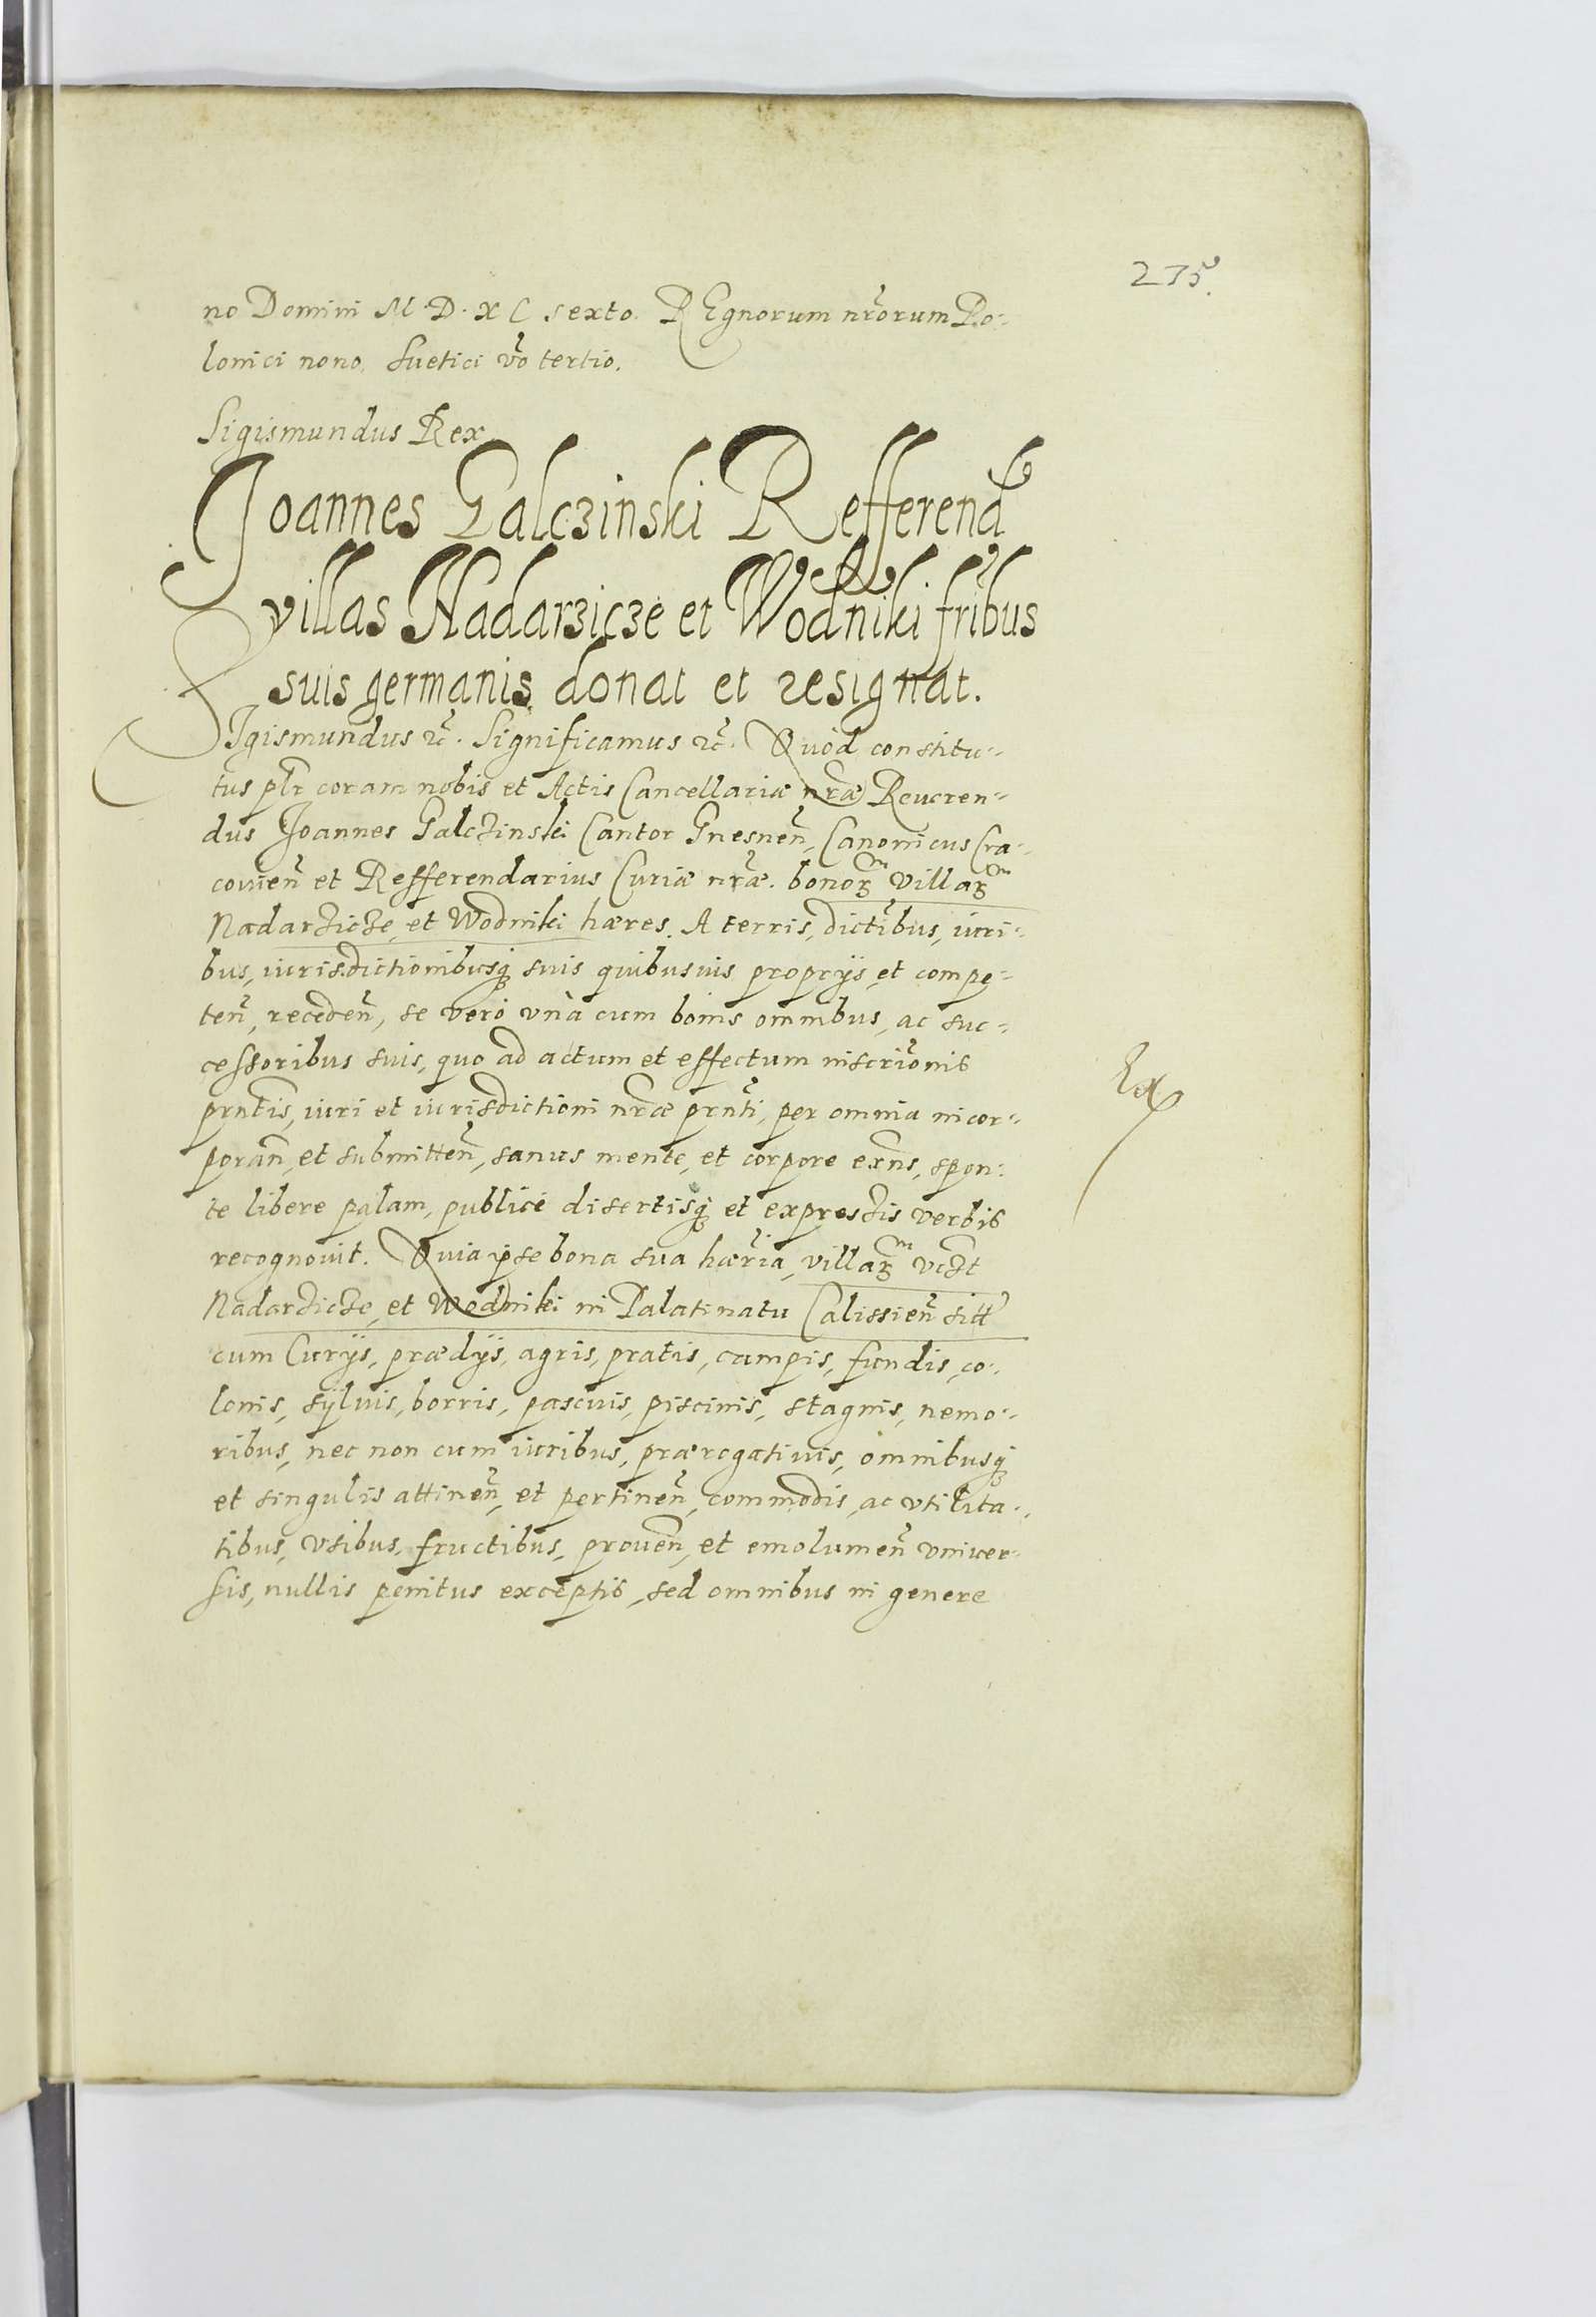 235.
no Domini M·D·XC sexto. REgnorum nr̃orum Po:
lonici nono. Suetici v̄o tertio.
Sigismundus Rex
Joannes Galczinski Refferend
villas Nadarzicze et Wodniki frībus
suis germanis donat et resignat.
SIgismundus ꝛc̃. Significamus ꝛc̃. Quòd constitu-
tus pl̄r coram nobis et Actis Cancellariæ nr̃æ Reueren-
dus Joannes Galczinski Cantor Gnesnen̄, Canonicus Cra-
couien̄ et Refferendarius Curiæ nr̃æ. bonoꝝm villaꝝm
Nadarzicze, et Wodniki hæres. A terris, dictībus, iuri-
bus, iurisdictionibusq̨ suis quibusuis proprijs, et compe-
ten̄, receden̄, se verò vnà cum bonis omnibus, ac suc-
cessoribus suis, quo ad actum et effectum inscriōnis
prn̄tis, iuri et iurisdictioni nr̃æ prn̄ti, per omnia incor-
poran̄, et submitten̄, sanus mente, et corpore exn̄s, spon:
te libere palam, publicè disertisq̨ et expressis verbis
recognouit. Quia ipse bona sua hær̄ia, villaꝝm vczt
Nadarzicze, et Wodniki in Palatinatu Calissien̄ sitt
cum Curijs, prædijs, agris, pratis, campis, fundis, co:
lonis, syluis, borris, pascuis, piscinis, stagnis, nemo:
ribus, nec non cum iuribus, prærogatiuis, omnibusq̨
et singulis attinen̄, et pertinen̄, commodis, ac vtilita-
tibus, vsibus, fructibus, prouen̄, et emolumen̄ vniuer-
sis, nullis penitus exceptis, sed omnibus in genere